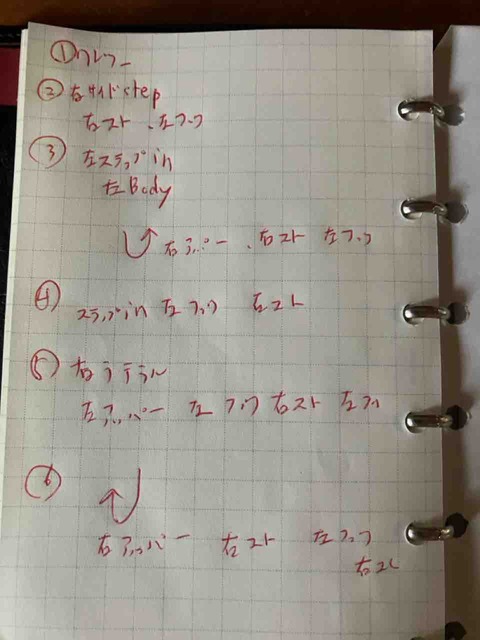 ① クレフー
② 右サイドstep
右スト、左フック
③ 左ステップin
左Body
右アッパー、右スト 左フック
④ ステップin 左フック 右スト
⑤ 右ラテラル
左アッパー 左フック 右スト 左フック
⑥
右アッパー 右スト 左フック
右スト